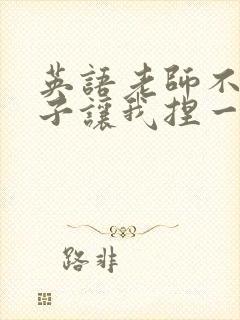 英語老師不
子讓我捏一
路非